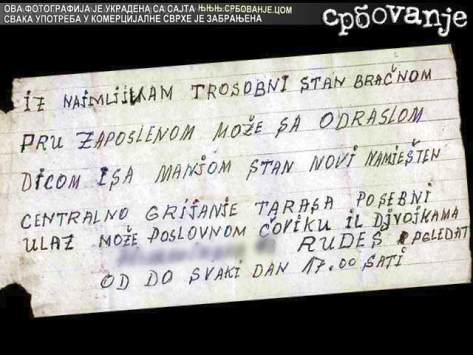 ОВА ФОТОГРАФИЈА ЈЕ УКРАДЕНА СА САЈТА ЊЊЊ.СРБОВАЊЕ.ЦОМ
СВАКА УПОТРЕБА У КОМЕРЦИЈАЛНЕ СВРХЕ ЈЕ ЗАБРАЊЕНА
србovanje
IZ NAIMLJIVAM TROSOBNI STAN BRAČNOM
PRU ZAPOSLENOM MOŽE SA ODRASLOM
DICOM ISA MANJOM STAN NOVI NAMJEŠTEN
CENTRALNO GRIJANJE TARASA POSEBNI
ULAZ MOŽE POSLOVNOM ČOVIKU IL DJVOJKAMA
RUDEŠ PGLEDAT
OD DO SVAKI DAN 17.00 SATI